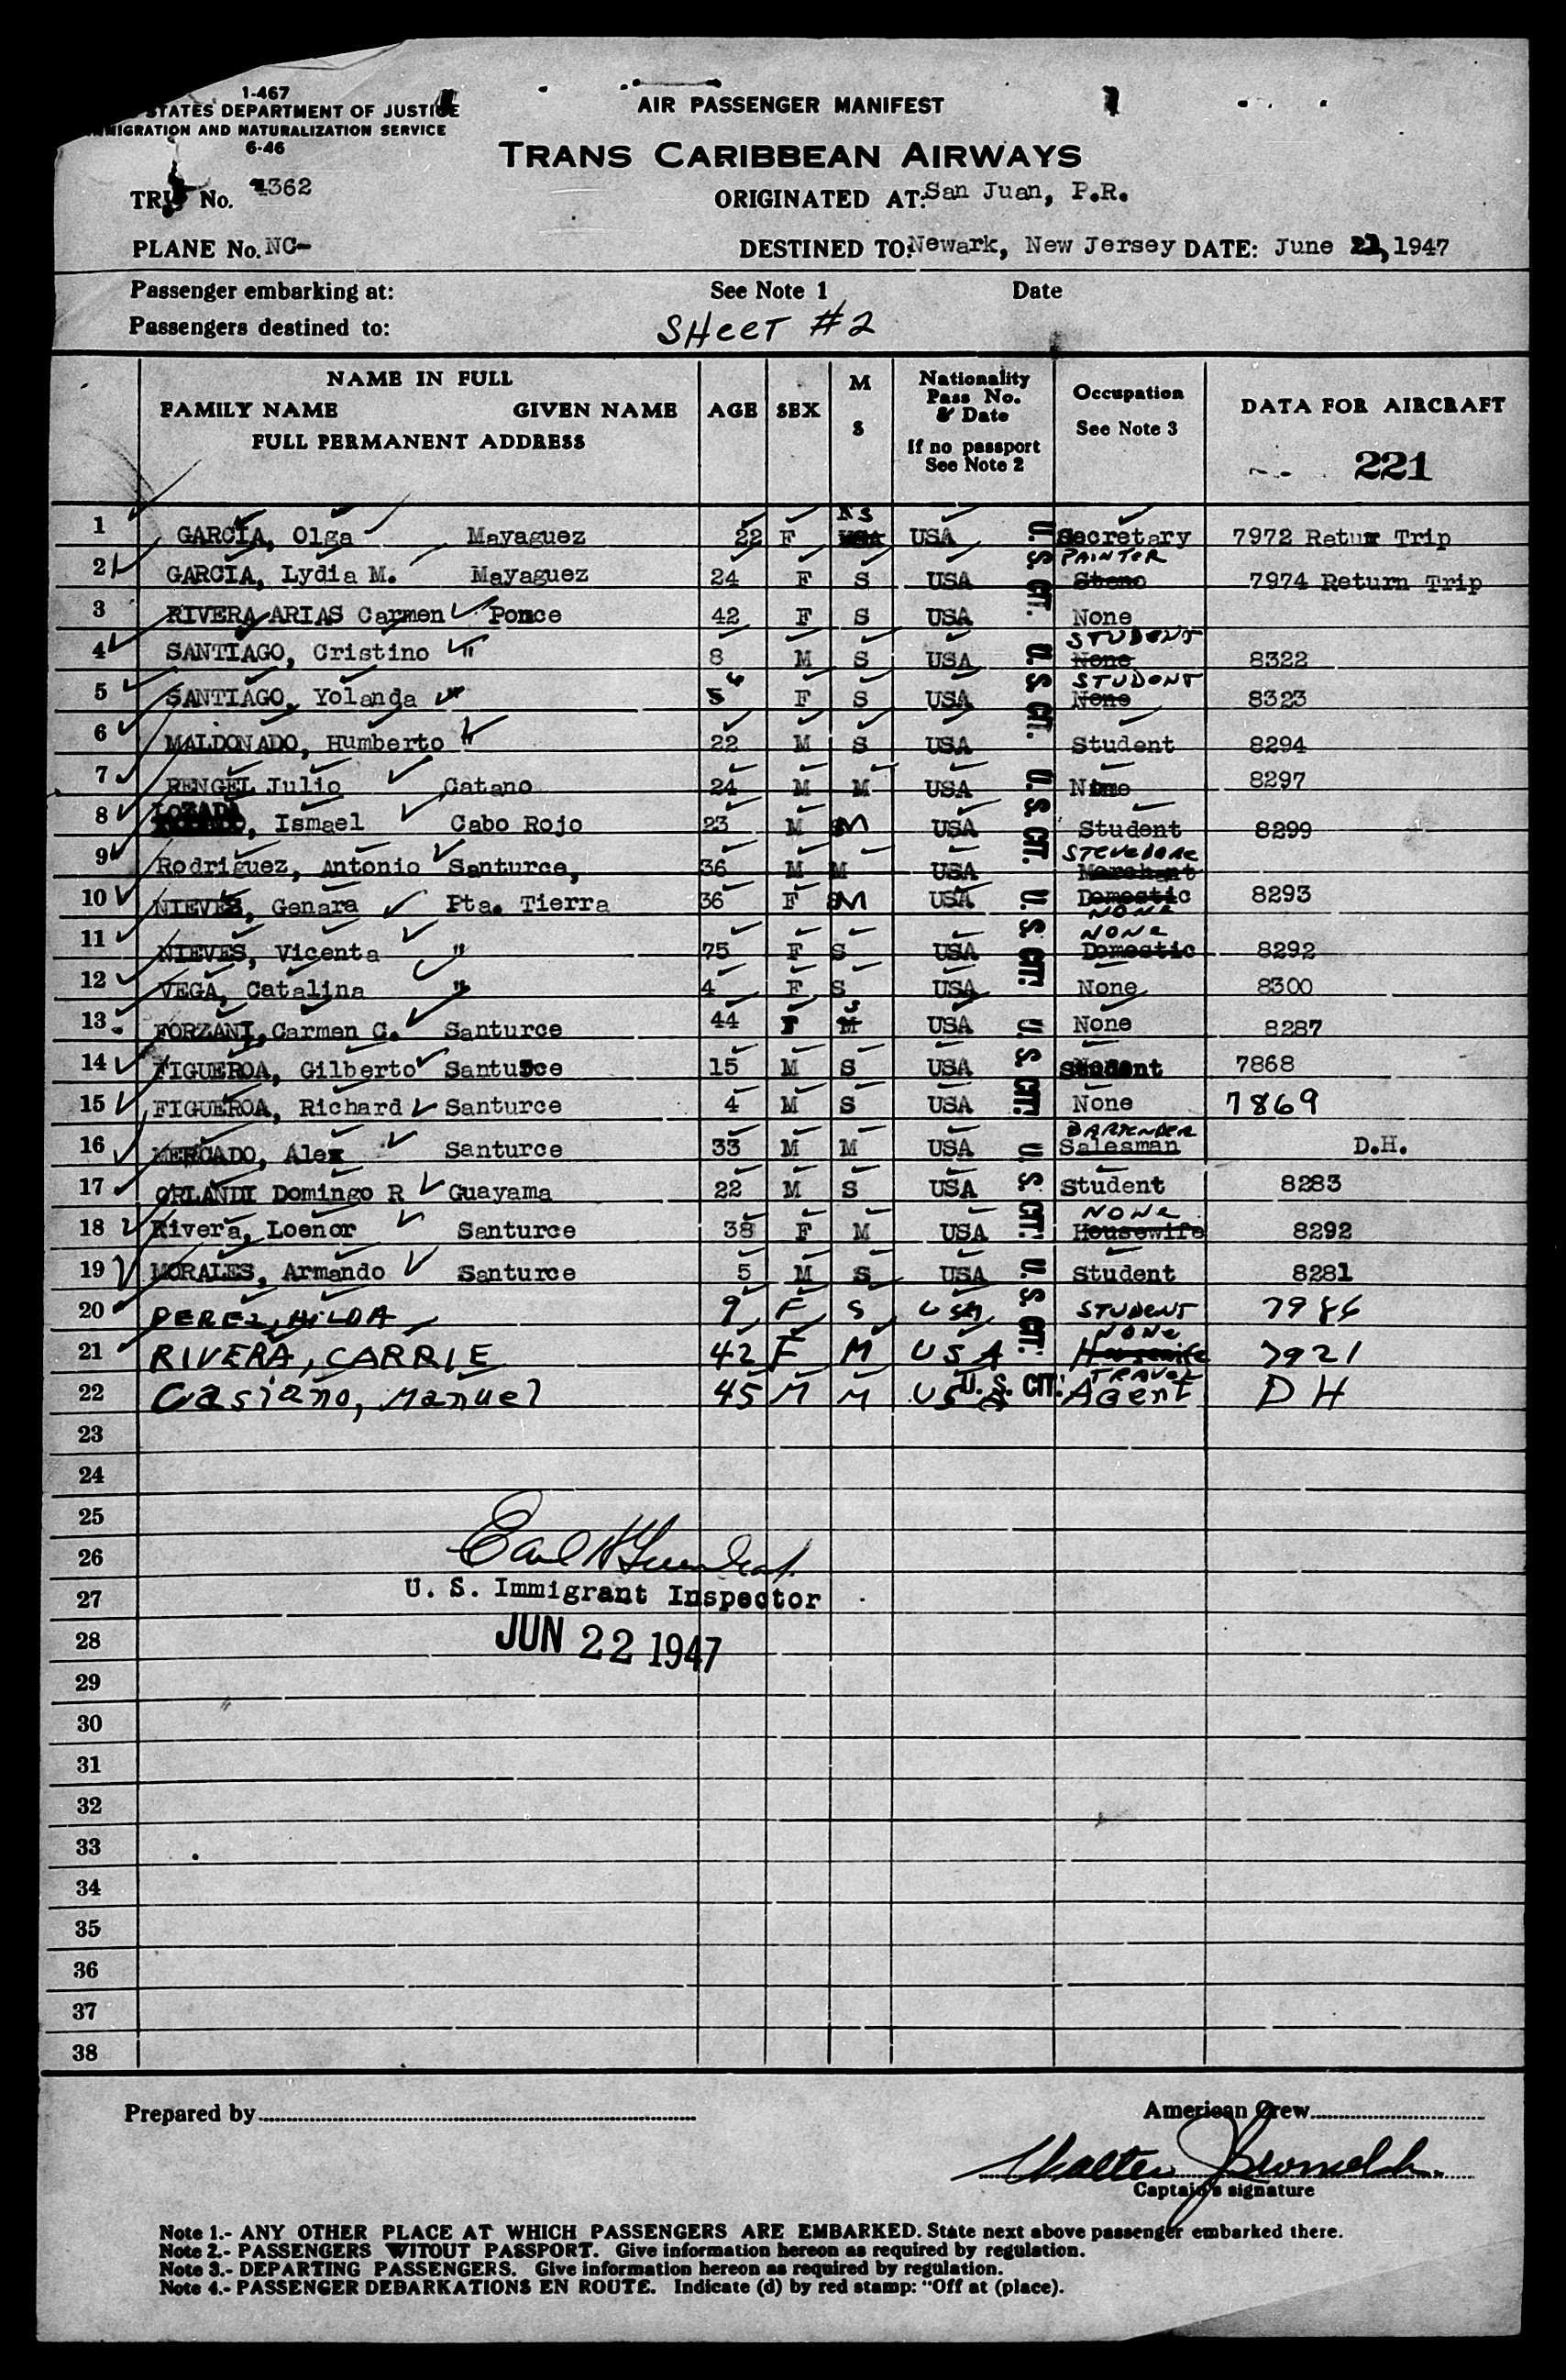 1-467
STATES DEPARTMENT OF JUSTICE
IMMIGRATION AND NATURALIZATION SERVICE
6-46
AIR PASSENGER MANIFEST
TRANS CARIBBEAN AIRWAYS
TRIP No. 1362
ORIGINATED AT: San Juan, P.R.
PLANE No. NC-
DESTINED TO: Newark, New Jersey DATE: June 22, 1947
Passenger embarking at: See Note 1 Date
Passengers destined to: SHEET #2
NAME IN FULL
FAMILY NAME GIVEN NAME
FULL PERMANENT ADDRESS
AGE SEX
M
S
Nationality
Pass No.
& Date
If no passport
See Note 2
Occupation
See Note 3
DATA FOR AIRCRAFT
221
1 GARCIA, Olga Mayaguez 22 F S USA Secretary 7972 Retur Trip
PAINTER
2 GARCIA, Lydia M. Mayaguez 24 F S USA Steno 7974 Return Trip
3 RIVERA ARIAS Carmen Ponce 42 F S USA None
STUDENT
4 SANTIAGO, Cristino " 8 M S USA None 8322
6 STUDENT
5 SANTIAGO, Yolanda " 5 F S USA None 8323
6 MALDONADO, Humberto " 22 M S USA Student 8294
7 RENGEL Julio Catano 24 M M USA None 8297
LOZADA
8 , Ismael Cabo Rojo 23 M M USA Student 8299
STEVEDORE
9 Rodriguez, Antonio Santurce, 36 M M USA Merchant
10 NIEVES, Genara Pta. Tierra 36 F M USA Domestic 8293
NONE
NONE
11 NIEVES, Vicenta " 75 F S USA Domestic 8292
12 VEGA, Catalina " 4 F S USA None 8300
S
13 FORZANI, Carmen C. Santurce 44 F M USA None 8287
14 FIGUEROA, Gilberto Santurce 15 M S USA Student 7868
15 FIGUEROA, Richard Santurce 4 M S USA None 7869
BARTENDER
16 MERCADO, Alex Santurce 33 M M USA Salesman D.H.
17 ORLANDI Domingo R Guayama 22 M S USA Student 8283
NONE
18 Rivera, Loenor Santurce 38 F M USA Housewife 8292
19 MORALES, Armando Santurce 5 M S USA Student 8281
20 PEREZ, HILDA 9 F S USA STUDENT 7986
NONE
21 RIVERA, CARRIE 42 F M USA Housewife 7921
TRAVEL
22 Casiano, Manuel 45 M M US Agent D H
U. S. CIT.
U. S. CIT.
U. S. CIT.
U. S. CIT.
U. S. CIT.
U. S. CIT.
U. S. CIT.
U. S. CIT.
23
24
25
26
27
28
29
30
31
32
33
34
35
36
37
38
U. S. Immigrant Inspector
JUN 22 1947
Prepared by
American Crew
Walter
Captain's signature
Note 1.- ANY OTHER PLACE AT WHICH PASSENGERS ARE EMBARKED. State next above passenger embarked there.
Note 2.- PASSENGERS WITOUT PASSPORT. Give information hereon as required by regulation.
Note 3.- DEPARTING PASSENGERS. Give information hereon as required by regulation.
Note 4.- PASSENGER DEBARKATIONS EN ROUTE. Indicate (d) by red stamp: "Off at (place).